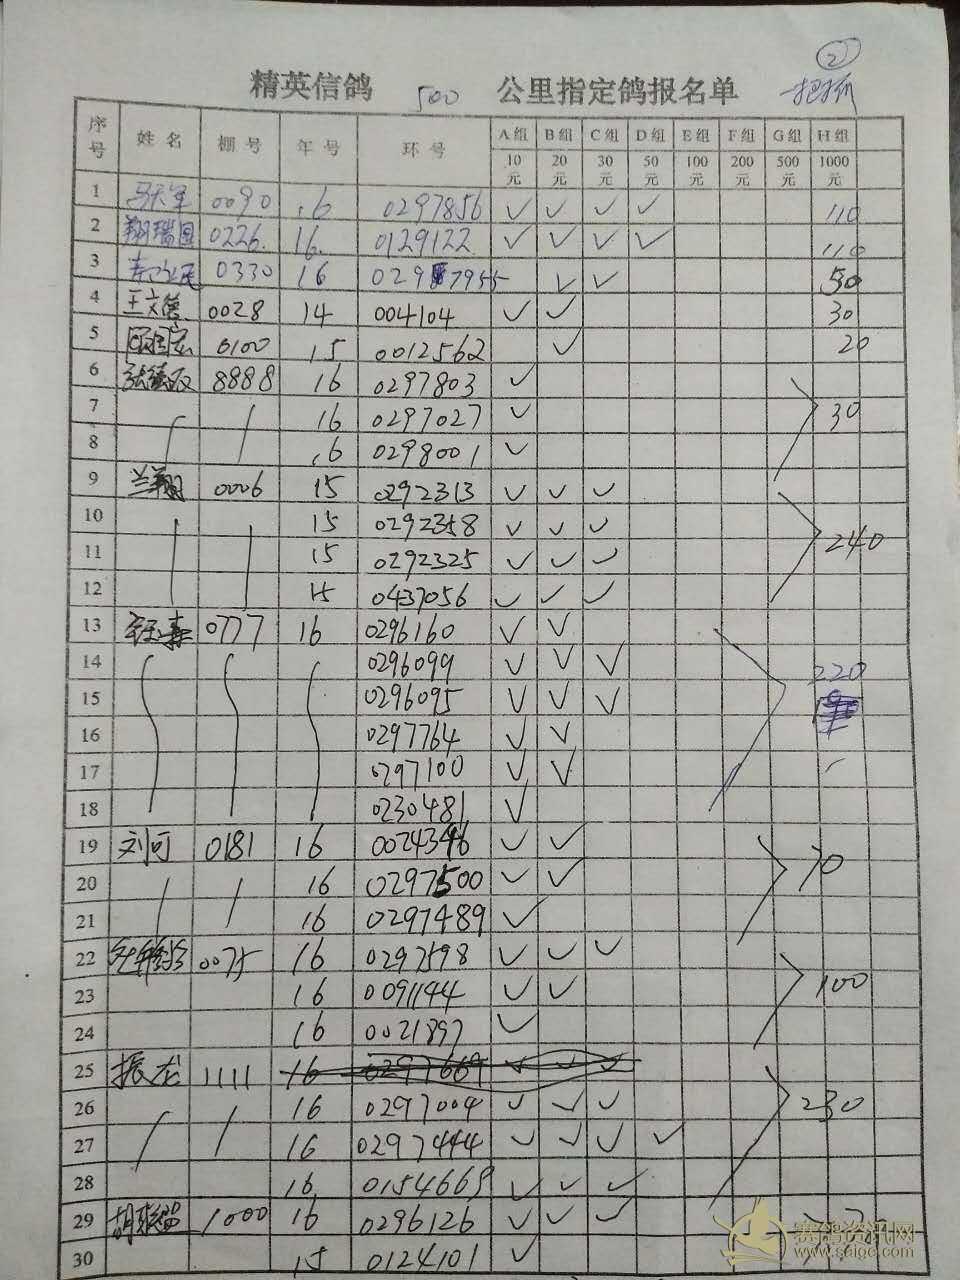 ②
精英信鸽 500 公里指定鸽报名单
序号 姓名 棚号 年号 环号 A组 B组 C组 D组 E组 F组 G组 H组
10元 20元 30元 50元 100元 200元 500元 1000元
1 0090 16 0297856 ✓ ✓ ✓ ✓ 110
2 翔瑞国 0226. 16. 0129122 ✓ ✓ ✓ ✓ 110
3 0330 16 029 7955 ✓ ✓ 50
4 王文德 0028 14 004104 ✓ ✓ 30
5 0100 15 0012562 ✓ 20
6 8888 16 0297803 ✓
7 16 0297027 ✓ 30
8 16 0298001 ✓
9 兰翔 0006 15 0292313 ✓ ✓ ✓
10 15 0292358 ✓ ✓ ✓
11 15 0292325 ✓ ✓ ✓ 240
12 15 0437056 ✓ ✓ ✓
13 0777 16 0296160 ✓ ✓
14 0296099 ✓ ✓ ✓ 220
15 0296095 ✓ ✓ ✓
16 0297764 ✓ ✓
17 0297100 ✓ ✓
18 0230481 ✓
19 刘可 0181 16 0024346 ✓ ✓
20 16 0297500 ✓ ✓ 70
21 16 0297489 ✓
22 0075 16 0297598 ✓ ✓ ✓
23 16 0091144 ✓ ✓ 100
24 16 0021897 ✓
25 振龙 1111 16 0297669 ✓ ✓ ✓
26 16 0297004 ✓ ✓ ✓ 230
27 16 0297444 ✓ ✓ ✓ ✓
28 16 0154669 ✓ ✓ ✓
29 1000 16 0296126 ✓ ✓ ✓
30 15 0124101 ✓
赛鸽资讯网
www.saige.com